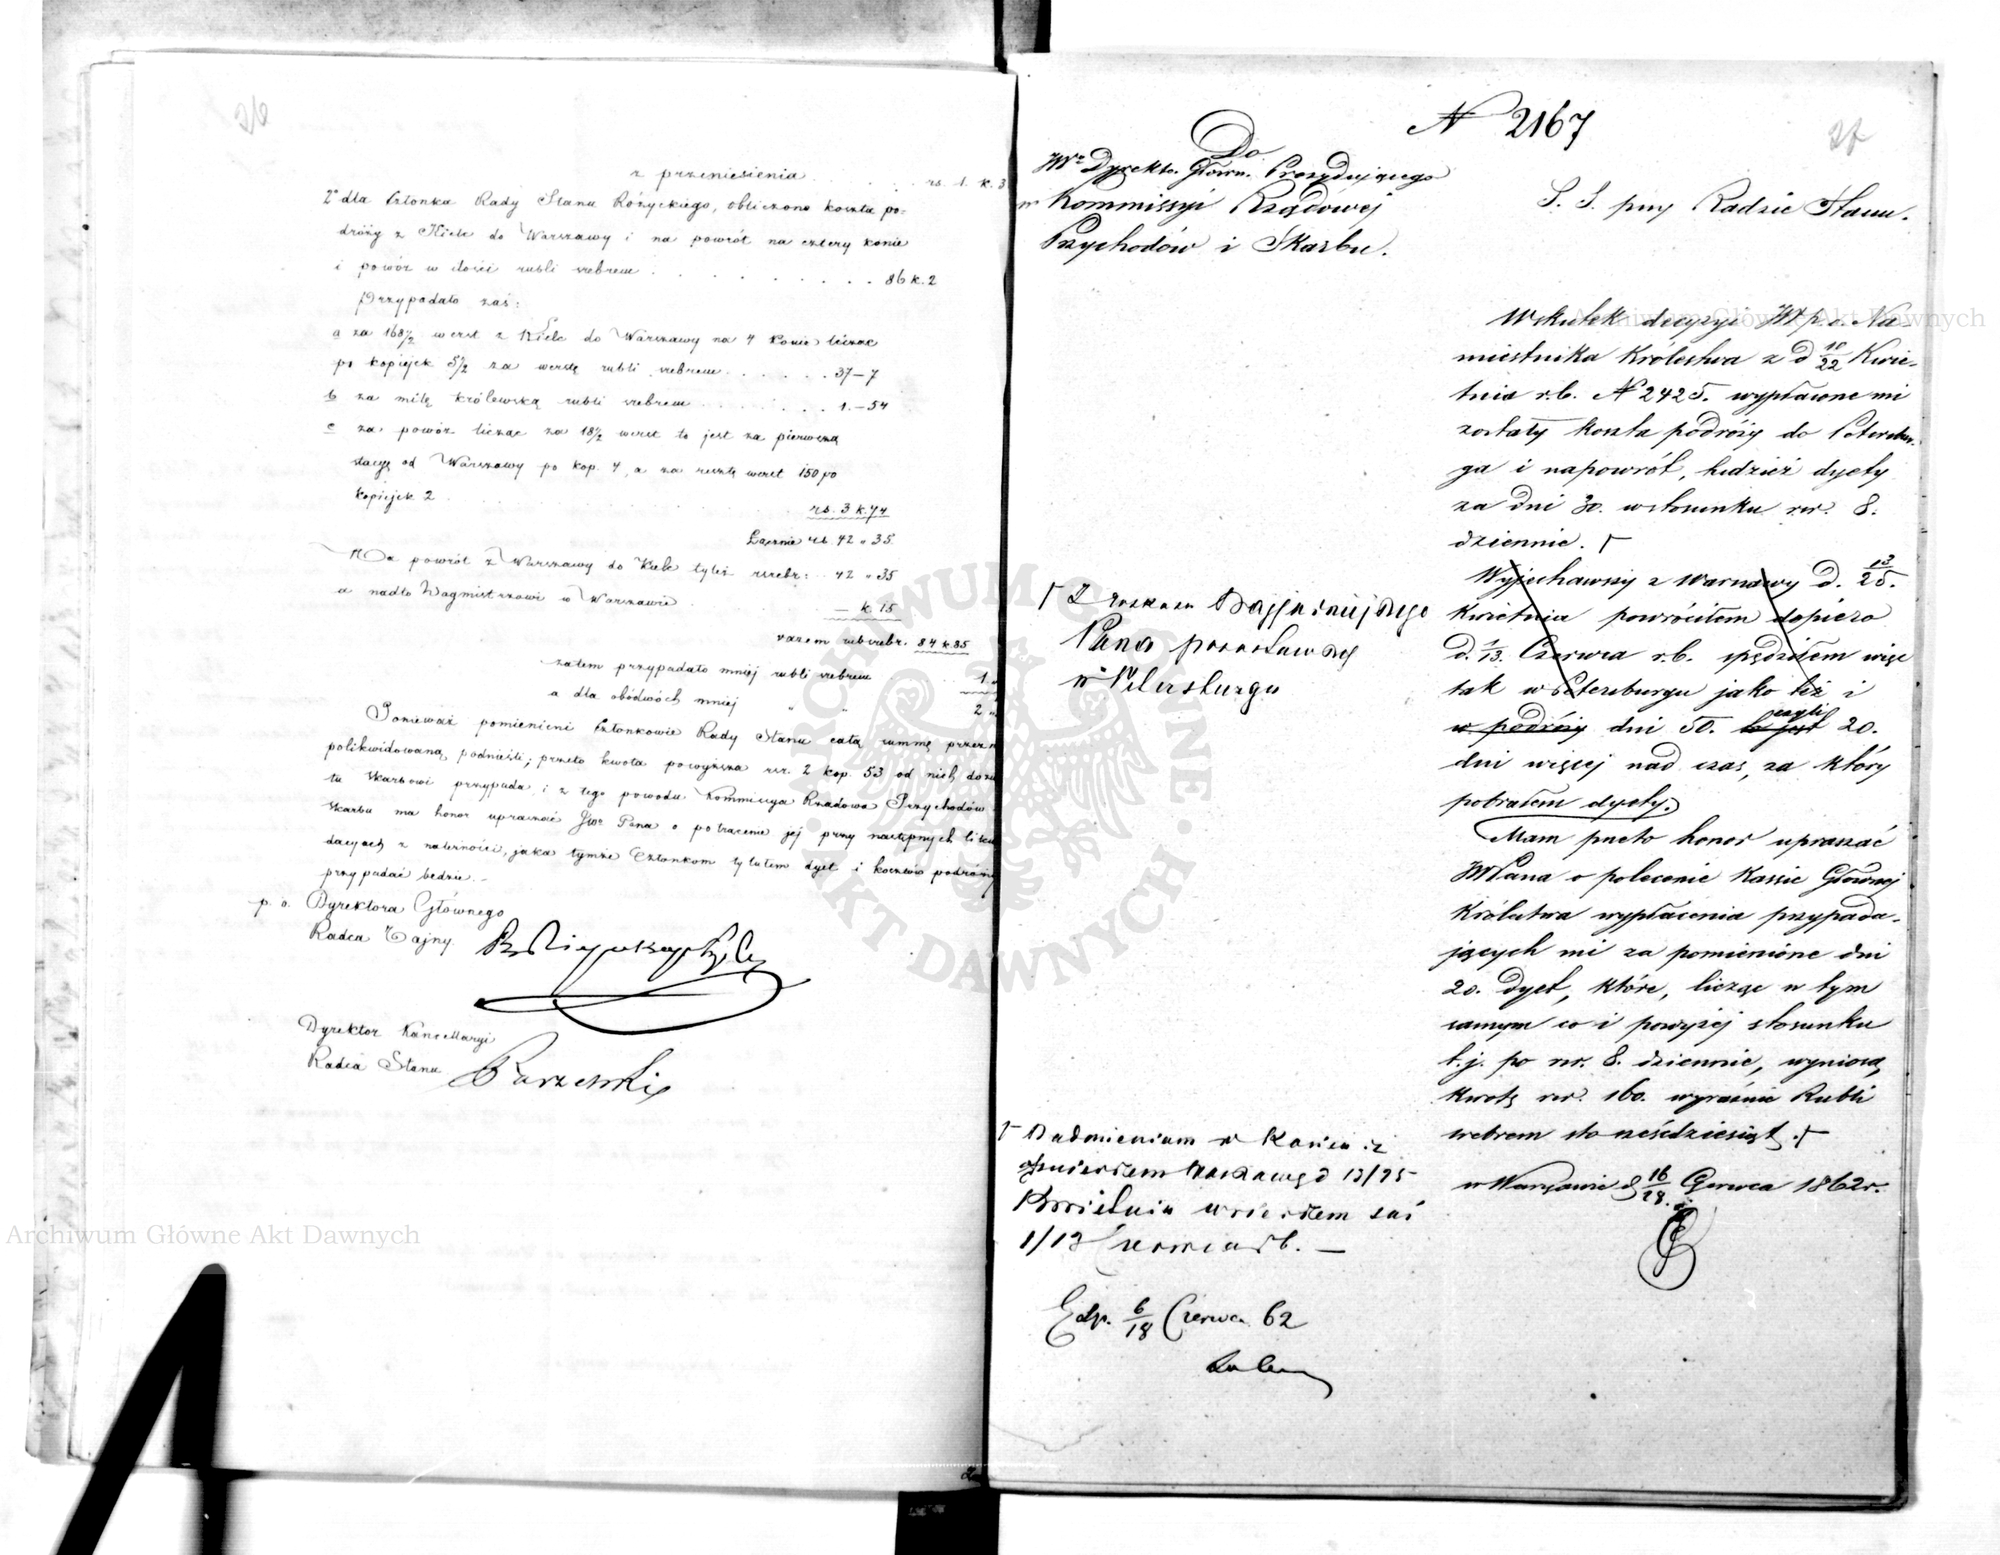 26
z przeniesienia . . . . . rs. 1. k. 3
2° dla Członka Rady Stanu Różyckiego, obliczono koszta po=
dróży z Kielc do Warszawy i na powrót na cztery konie
i powóz w ilości rubli srebrem . . . . . . . . 86 k. 2
Przypadało zaś:
a za 168½ werst z Kielc do Warszawy na 4 konie licząc
po kopiejek 5½ za werstę rubli srebrem . . . . . . 37–7
b za milę królewską rubli srebrem . . . . . . . 1.–54
c za powóz licząc za 18½ werst to jest za pierwszą
stacyę od Warszawy po kop. 4, a za resztę werst 150 po
kopiejek 2 . . . . . . . . . . rs. 3 k. 74
Łącznie rs. 42 „ 35
Na powrót z Warszawy do Kielc tyleż rsrebr: . . 42 „ 35
a nadto Wagmistrzowi w Warszawie . . . . . — k. 15
razem rub srebr. 84 k. 85
zatem przypadało mniej rubli srebrem . . . 1. „
a dla obódwóch mniej „ „ 2 „
Ponieważ pomienieni Członkowie Rady Stanu całą summę przez n
polikwidowaną podnieśli; przeto kwota powyższa rsr. 2 kop. 53 od nich do
tu Skarbowi przypada i z tego powodu Kommissya Rządowa Przychodów
Skarbu ma honor upraszać JWo Pana o potrącenie jej przy następnych likw
dacyach z należności, jaka tymże Członkom tytułem dyet i kosztów podróży
przypadać będzie.–
p. o. Dyrektora Głównego
Radca Tajny
Dyrektor Kancellaryi
Radca Stanu
N 2167
27
Do
JWo Dyrekto. Główn. Prezydującego
w Kommissyi Rządowej
Przychodów i Skarbu.
S. S. przy Radzie Stanu.
Wskutek decyzyi JW p. o. Na-
miestnika Królestwa z d 10/22 Kwie-
tnia r.b. N 2425. wypłacone mi
zostały koszta podróży do Petersbur-
ga i napowrót, tudzież dyety
za dni 30. w stosunku rsr. 8.
dziennie. Γ
Wyjechawszy z Warszawy d. 13/25.
Kwietnia powróciłem dopiero
d. 1/13. Czerwca r.b. spędziłem więc
tak w Petersburgu jako też i
w podróży dni 50. to jest czyli 20.
dni więcej nad czas, za który
pobrałem dyety.
Γ Z rozkazu Najjaśniejszego
Pana pozostawszy
w Petersburgu
Mam przeto honor upraszać
JWPana o polecenie Kassie Głównej
Królestwa wypłacenia przypada-
jących mi za pomienione dni
20. dyet, które, licząc w tym
samym co i powyżej stosunku
t. j. po rsr. 8. dziennie, wyniosą
kwotę rsr. 160. wyraźnie Rubli
srebrem sto sześćdziesiąt. Γ
w Warszawie d 16/28. Czerwca 1862 r.
Γ Nadmieniam w końcu iż
Warszawę d 13/25
Kwietnia wróciłem zaś
1/13 Czerwca r b. —
Exp. 6/18 Czerwca 62
Archiwum Główne Akt Dawnych
Archiwum Główne Akt Dawnych
ARCHIWUM GŁÓWNE · AKT DAWNYCH ·